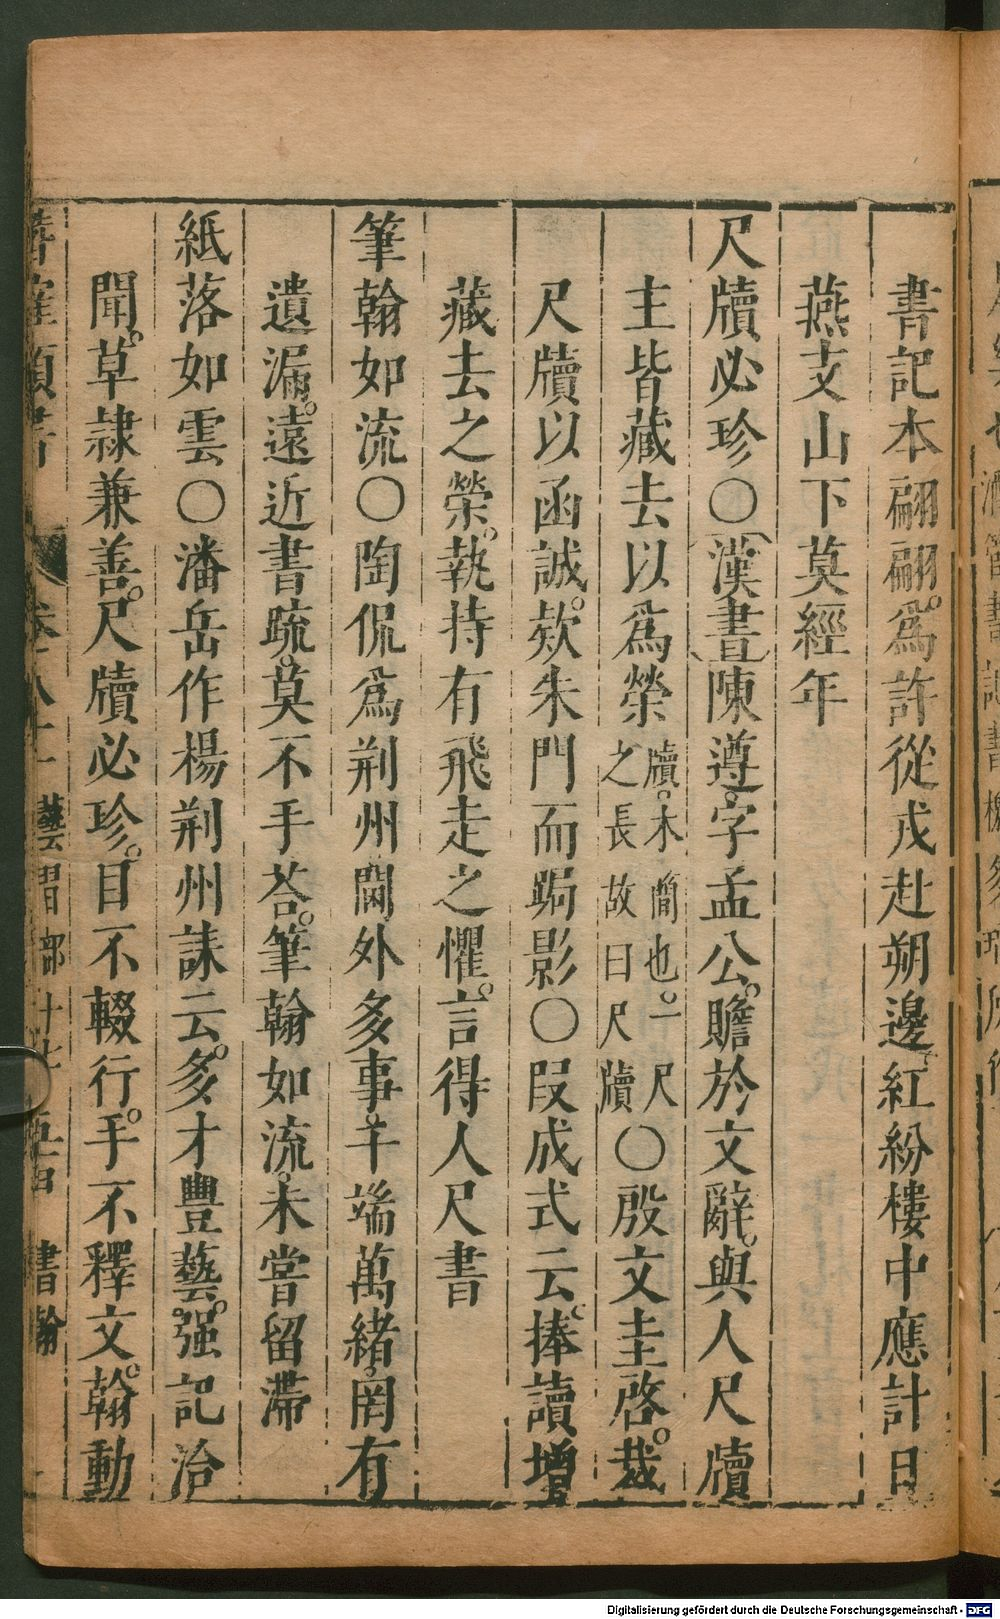 書記本翩翩爲許從戎赴朔邊紅紛樓中應計日
燕支山下莫經年
尺牘必珍〇漢書陳遵字孟公贍於文辭與人尺牘
主皆藏去以爲榮牘木簡也一尺之長故曰尺牘〇殷文圭啓裁
尺牘以函誠欸朱門而跼影〇段成式云捧讀增
藏去之榮執持有飛走之懼言得人尺書
筆翰如流〇陶侃爲荆州閫外多事千端萬緒罔有
遺漏遠近書疏莫不手荅筆翰如流未嘗留滯
紙落如雲〇潘岳作楊荆州誄云多才豐藝强記洽
聞草隷兼善尺牘必珍目不輟行手不釋文翰動
類書 卷 藝習部十七 五百 書翰
Digitalisierung gefördert durch die Deutsche Forschungsgemeinschaft - DFG